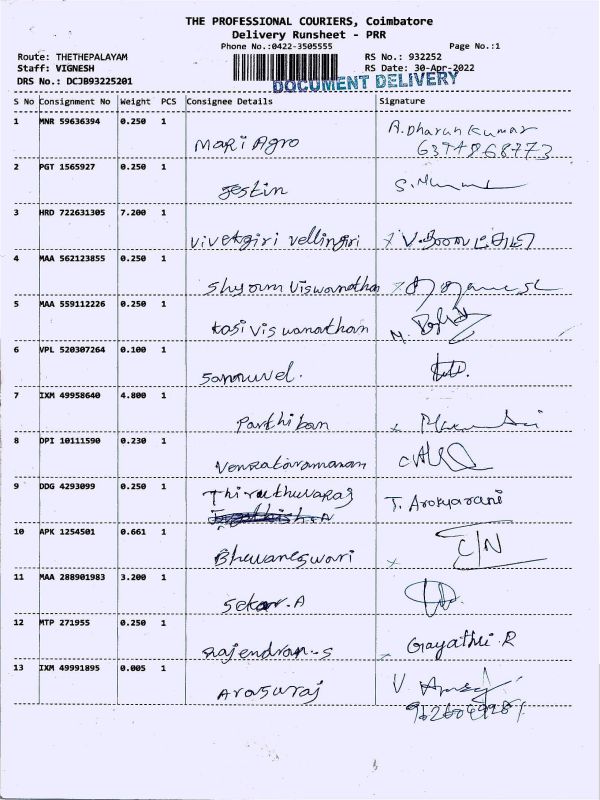 THE PROFESSIONAL COURIERS, Coimbatore
Delivery Runsheet - PRR
Phone No.:0422-3505555 Page No.:1
Route: THETHEPALAYAM RS No.: 932252
Staff: VIGNESH RS Date: 30-Apr-2022
DRS No.: DCJB93225201 DOCUMENT DELIVERY
S No Consignment No Weight PCS Consignee Details Signature
1 MNR 59636394 0.250 1
Mari Agro A.Dharun Kumar
2 PGT 1565927 0.250 1
Jestin
3 HRD 722631305 7.200 1
Vivekgiri Vellingiri
4 MAA 562123855 0.250 1
Shyam Viswanathan
5 MAA 559112226 0.250 1
Kasi Viswanathan
6 VPL 520307264 0.100 1
Sammuvel.
7 IXM 49958640 4.800 1
Parthiban
8 DPI 10111590 0.230 1
Venkataramanan
9 DDG 4293099 0.250 1
Thiruthuvaraj T. Arokyarani
10 APK 1254501 0.661 1
Bhuvaneswari C/N
11 MAA 288901983 3.200 1
Sekar.A
12 MTP 271955 0.250 1
Rajendran-S Gayathri.R
13 IXM 49991895 0.005 1
Arasuraj